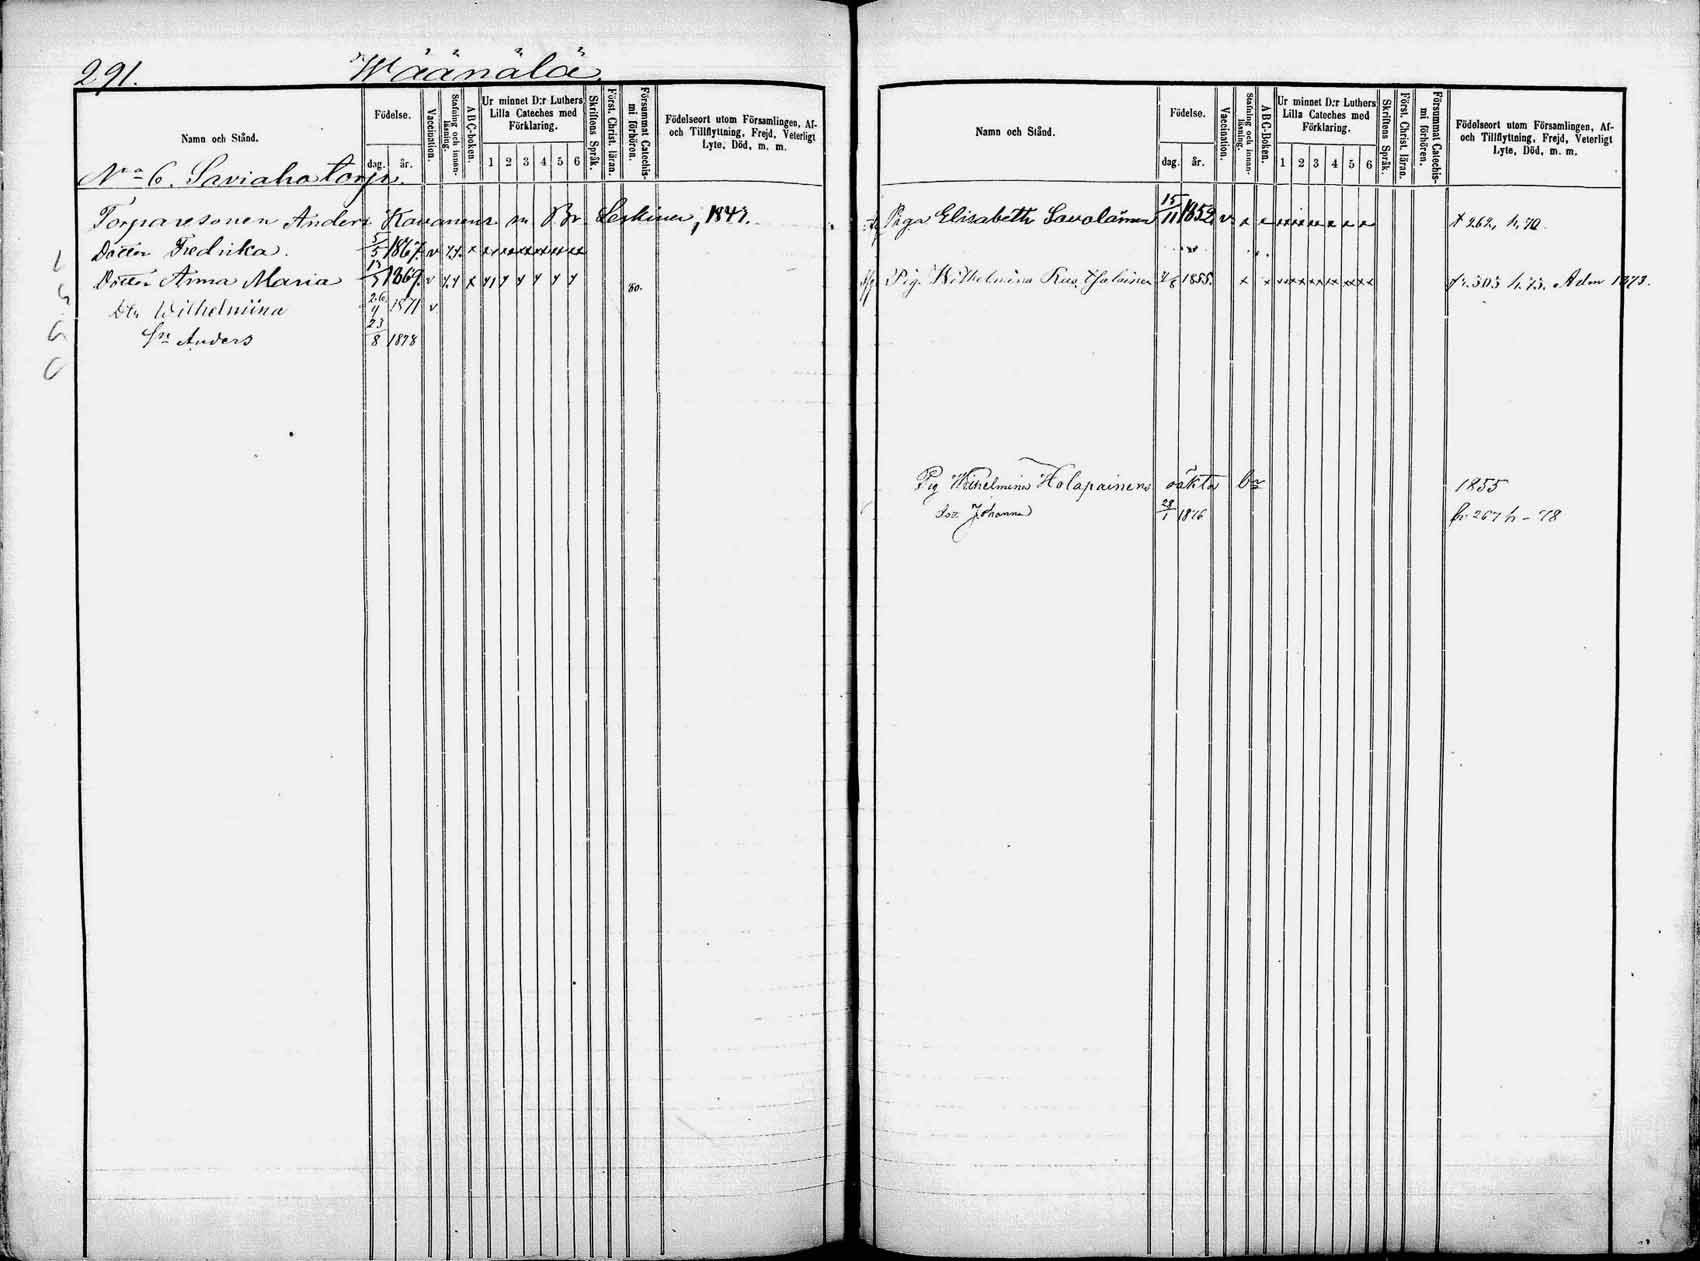 291. Wäänälä
Namn och Stånd.
Födelse.
dag. år.
Vaccination.
Stafning och innan-läsning.
ABC-boken.
Ur minnet D:r Luthers Lilla Cateches med Förklaring.
1 2 3 4 5 6
Skriftens Språk.
Först. Christ. läran.
Försummat Catechis-mi förhören.
Födelseort utom Församlingen, Af- och Tillflyttning, Frejd, Veterligt Lyte, Död, m. m.
No 6. Saviaho torp.
Torparesonen Anders m. Br. Leskinen, 1847.
Dotter Fredrika. 5/5 1867. v x x
Dotter Anna Maria 1869. v x 80.
Dtr Wilhelmiina 26 1871 v
Sn Anders 23/8 1878
Namn och Stånd.
Födelse.
dag. år.
Vaccination.
Stafning och innan-läsning.
ABC-Boken.
Ur minnet D:r Luthers Lilla Cateches med Förklaring.
1 2 3 4 5 6
Skriftens Språk.
Först. Christ. läran.
Försummat Catechis-mi förhören.
Födelseort utom Församlingen, Af- och Tillflyttning, Frejd, Veterligt Lyte, Död, m. m.
Piga Elisabeth Savolainen 15/11 1852 v x x x x x x x x 262,
Pig. Wilhelmina 1855. x x x x x x x x 303 h. 73. Adm 1873.
Pig Wilhelmina Holapainens oäkta 1855
Johanna 28/1 1876 fr. 267 h - 78